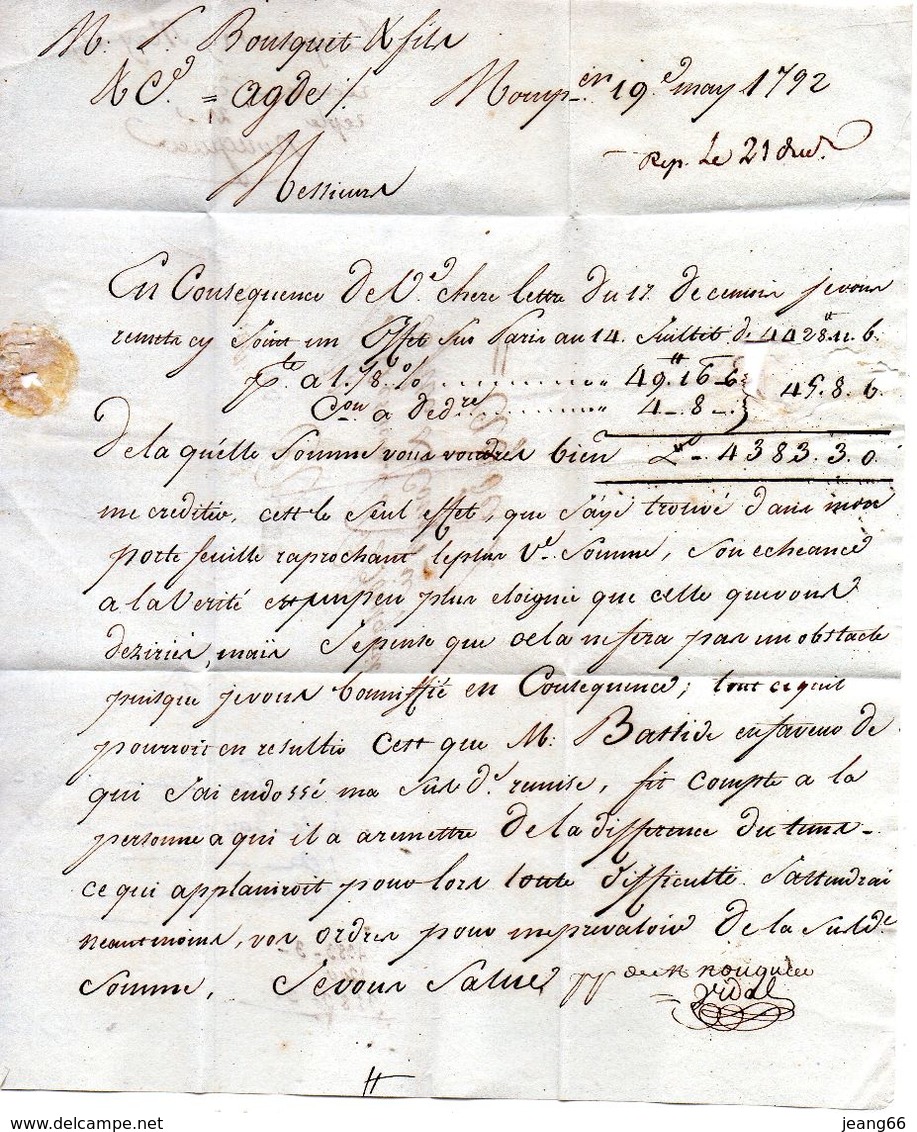 M: P. Bousquet & fils
& Ce. = agde /. Montp.er 19.e may 1792
Rep. Le 21 dud.
Messieurs
En Consequence De V.e chere lettre Du 17. De ce mois je vous
remets cy Joint un Effet Sur Paris au 14. Juillet d. 4428.tt 11. 6.
P.te a 1. 1/8. % ........ " 49.tt 16 - 6 } 45. 8. 6.
C.on a de d.re ........ " 4 - 8 - }
De la quelle Somme vous voudrés bien L.s - 4383. 3. 0
me crediter, cest le Seul effet, que J'aye trouvé dans mon
porte feuille raprochant le plus V.e Somme, Son echeance
a la Verité est un peu plus eloignée que celle que vous
deziries, mais Je pense que cela ne fera pas un obstacle
puisque je vous bonniffié en Consequence; tout ce qui
pourroit en resulter Cest que M: Bastide en faveur de
qui J'ai endossé ma Sus d.e remise, fit compte a la
personne a qui il a a remettre De la difference Du tems -
ce qui applaniroit pour lors toute difficulté. J'attendrai
neantmoins, vos ordres pour me prevaloir De la Sus d.e
Somme, Je vous Salue, pp.
Vidal
tt
delcampe.net
jeang66